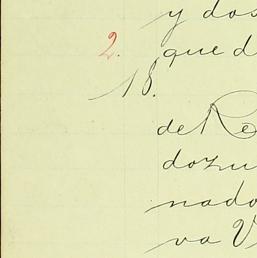 y dos
2. que d
18.
de Re
dozu
nado
va V